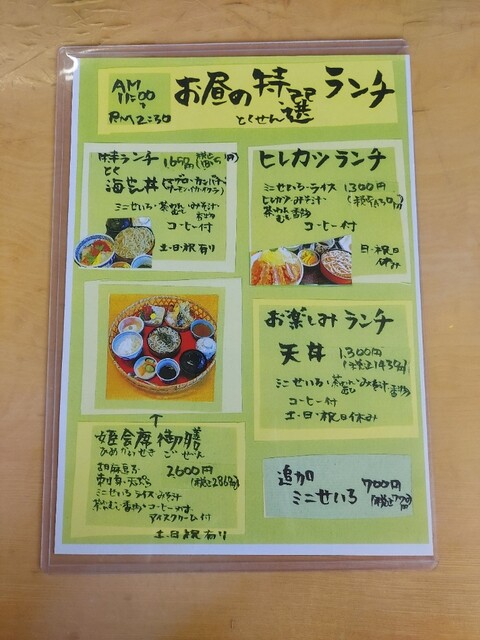 AM
11:00
〜
PM2:30
お昼の特選ランチ
とくせん
ランチ
とく
海鮮丼
ミニせいろ・茶わんむし・みそ汁
香物
コーヒー付
土・日・祝有り
ヒレカツランチ
ミニせいろ・ライス 1,300円
ヒレカツ・みそ汁 (税込1430円)
茶わんむし 香物
コーヒー付
日・祝日
休み
お楽しみランチ
天丼 1,300円
(税込1430円)
ミニせいろ・茶わんむし・みそ汁・香物
コーヒー付
土・日・祝日休み
↑
姫会席御膳
ひめかいせきごぜん
胡麻豆腐 2600円
刺身・天ぷら (税込2860円)
ミニせいろ ライス みそ汁
茶わんむし・香物・コーヒー付
アイスクリーム付
土・日・祝有り
追加 700円
ミニせいろ (税込770円)